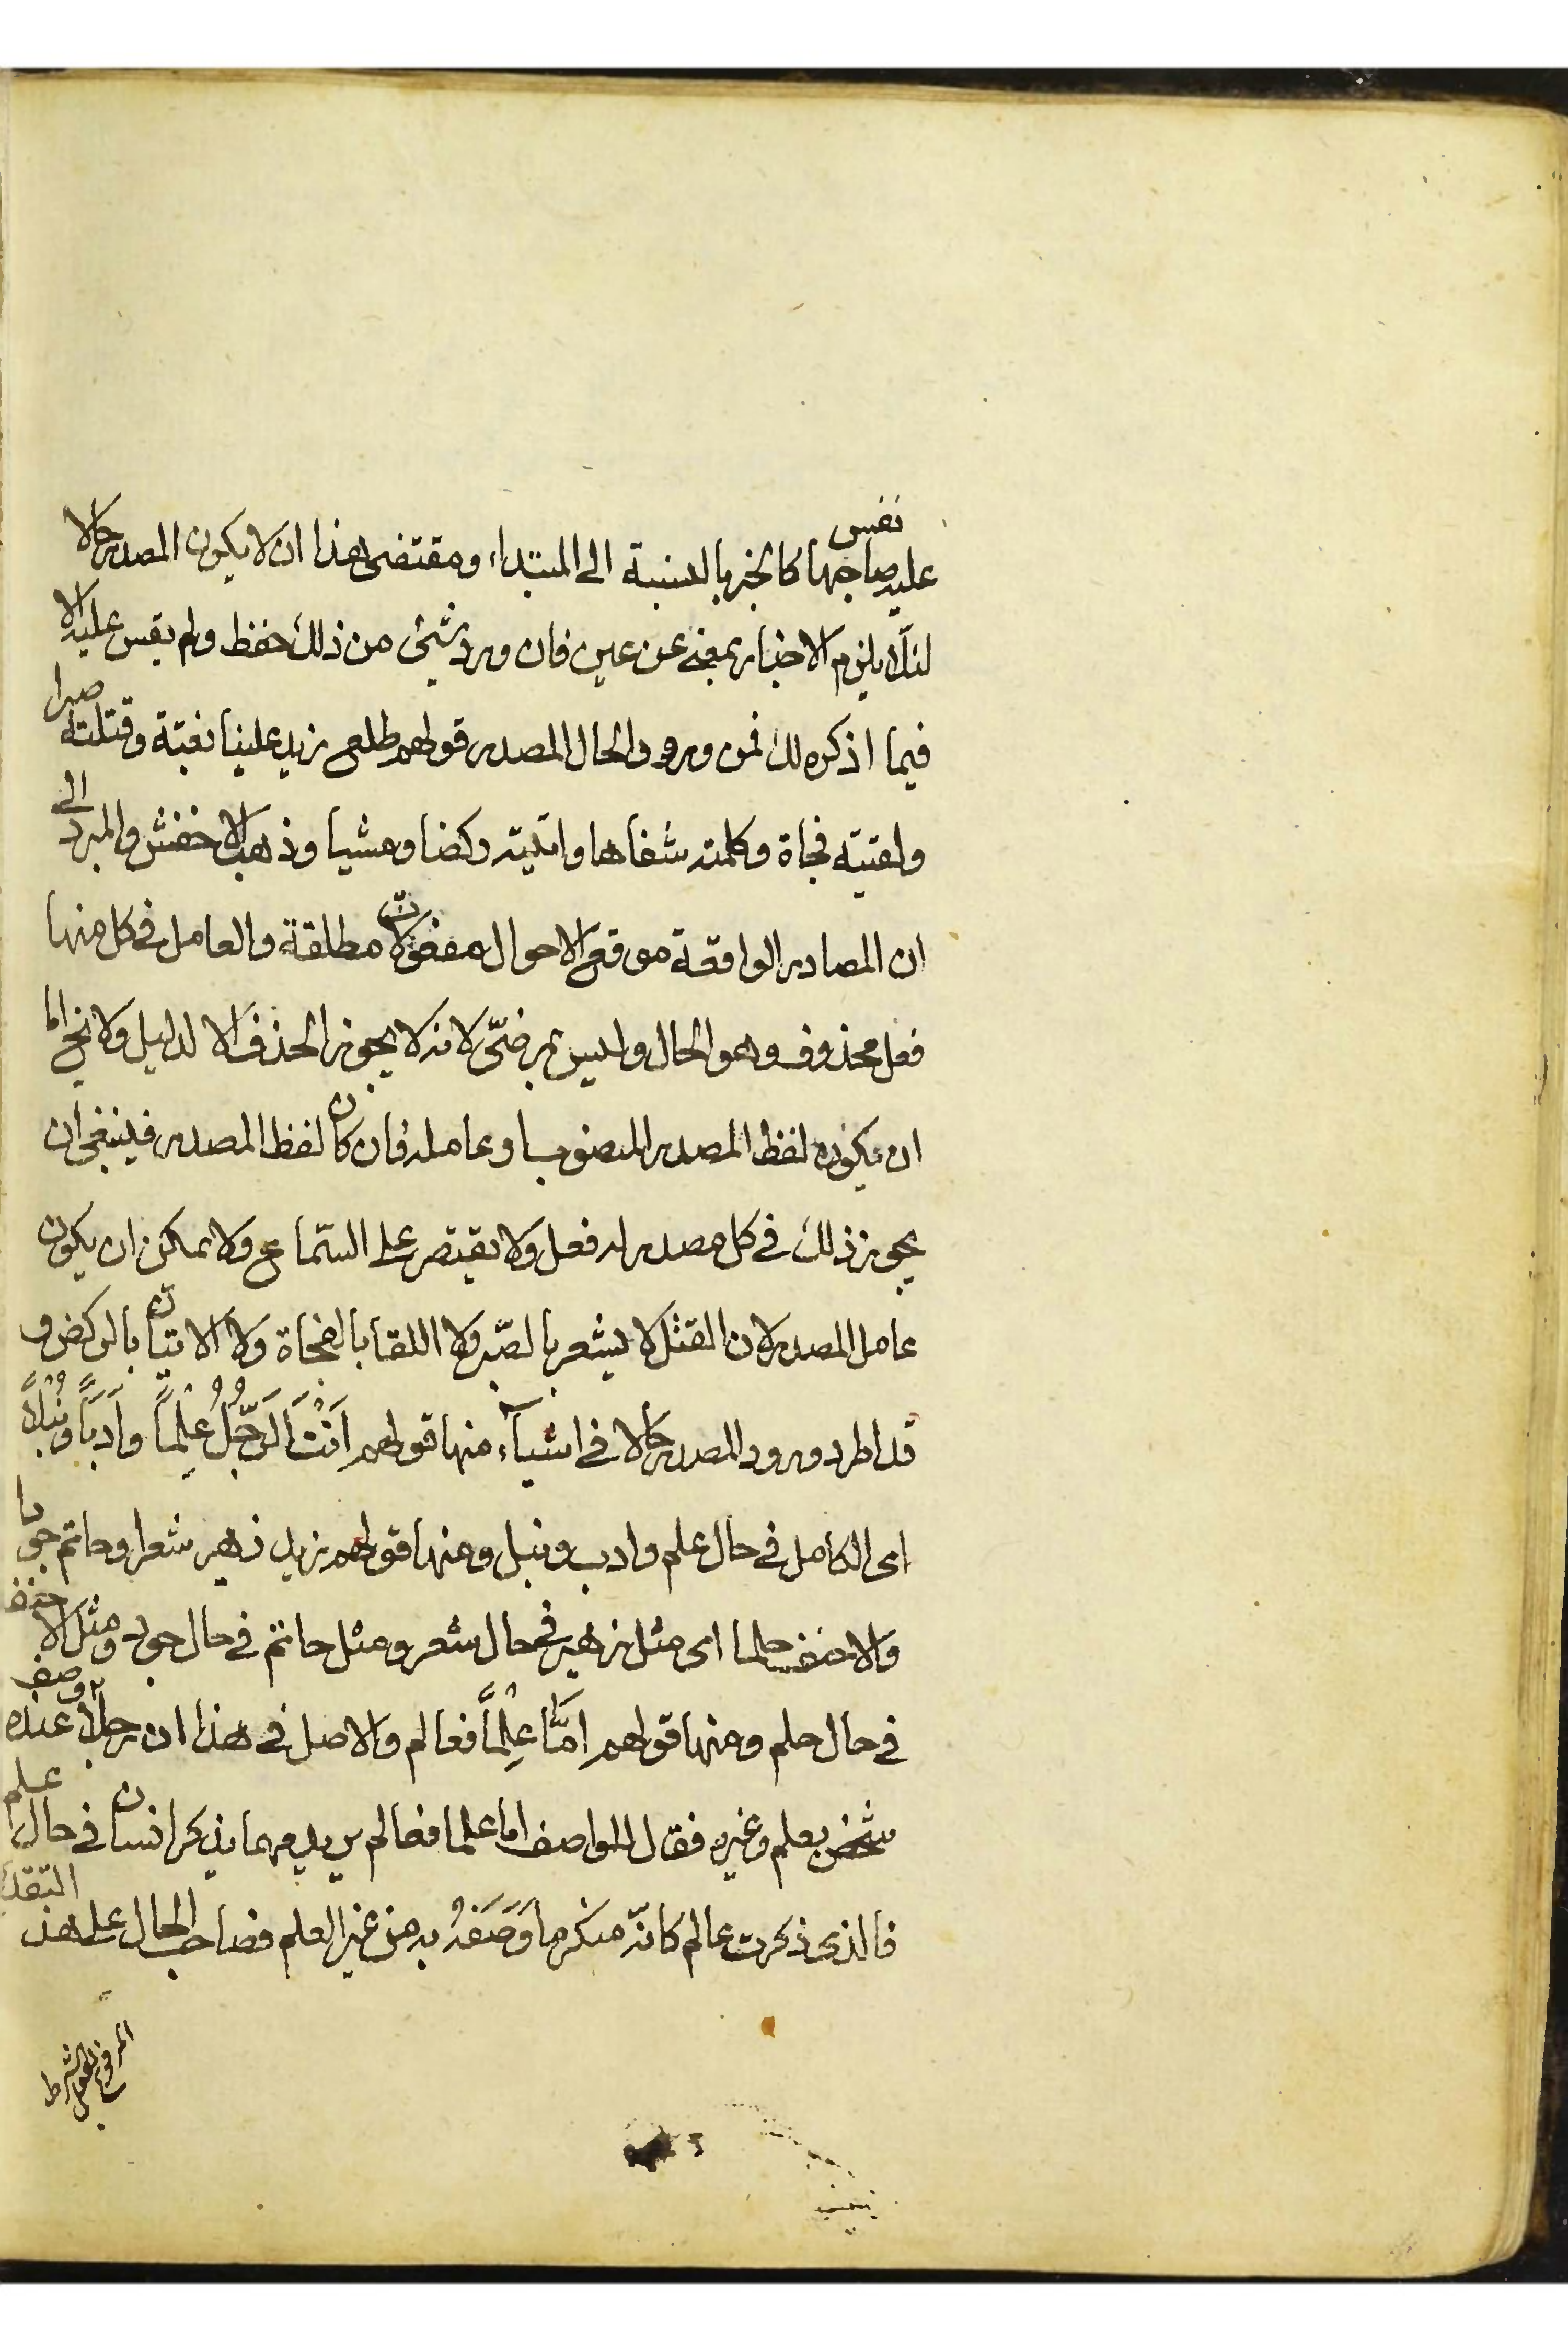 نفس
عليه صاحبها كالخبر بالنسبة الى المبتداء ومقتضى هذا ان لا يكون المصدر حالا
لئلا يلزم الاخبار بمعنى عن عين فان ورد شيئ من ذلك حفظ ولم يقس عليه الا
فيما اذكره لك فمن ورود الحال المصدر قولهم طلع زيد علينا بغتة وقتلته صبرا
ولقيته فجاة وكلمته شفاها واتيته ركضا ومشيا وذهب الاخفش والمبرد الى
ان المصادر الواقعة موقع الاحوال مفعولات مطلقة والعامل في كل منها
فعل محذوف وهو الحال وليس بمرضيّ لانه لا يجوز الحذف الا لدليل ولا يخ اما
ان يكون لفظ المصدر المنصوب او عامله فان كان لفظ المصدر فينبغي ان
يجوز ذلك في كل مصدر له فعل ولا يقتصر على السّماع ولا يمكن ان يكون
عامل المصدر لان القتل لا يشعر بالصّبر ولا اللقا بالفجاة ولا الاتيان بالركض و
قد اطرد ورود المصدر حالا في اشيآء منها قولهم اَنْتَ الَرّجُلُ عِلْماً واَدَباً ونُبْلاً
اى الكامل في حال علم وادب ونبل ومنها قولهم زيد زهير شعرا وحاتم جودا
والاحنف حلما اى مثل زهير في حال شعر ومثل حاتم في حال جود ومثل الاحنف
في حال حلم ومنها قولهم امَّا عِلْماً فعالم والاصل في هذا ان رجلاً وصف عنده
شخص بعلم وغيره فقال للواصف اما علما فعالم يريد مهما يذكر انسان في حال علم
فالذى ذكرت عالم كانّه منكر ما وَصَفَهُ به من غير العلم فصاحب الحال على هذا التقدير
المرفوع بفعل الشرط